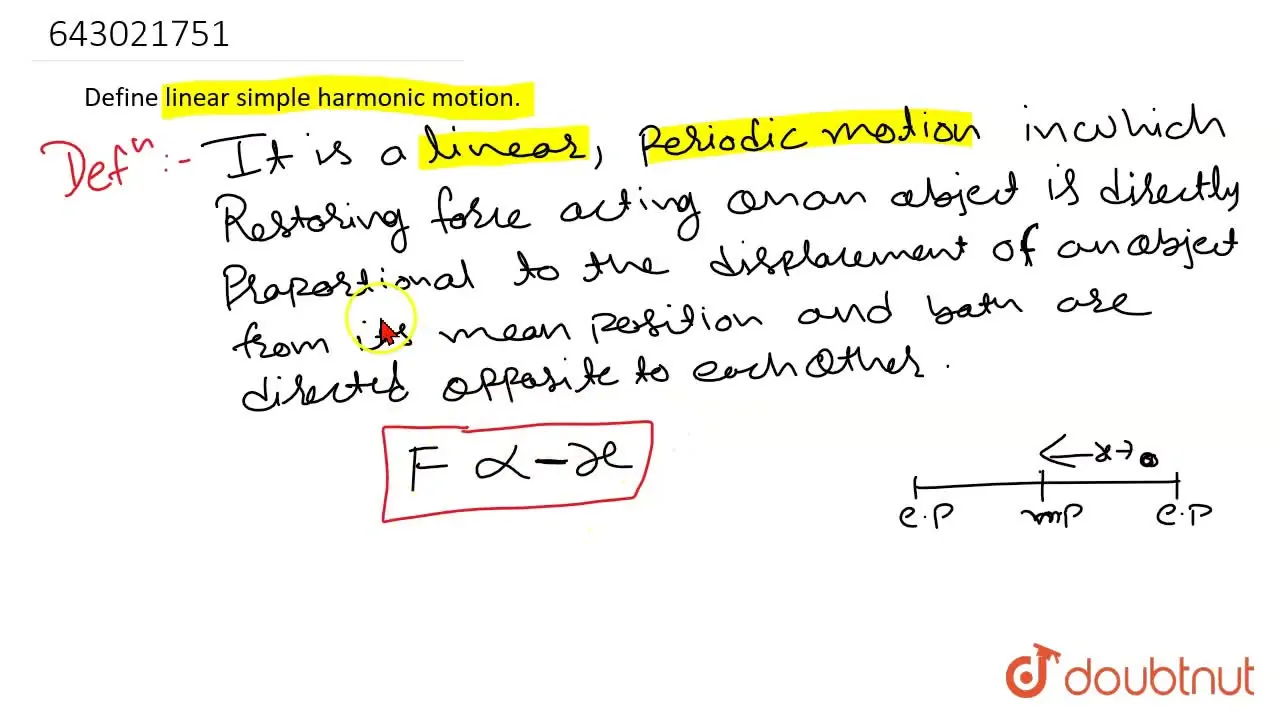 643021751
Define linear simple harmonic motion.
Defⁿ :- It is a linear, Periodic motion in which
Restoring force acting on an object is directly
Proportional to the displacement of an object
from its mean position and both are
directed opposite to each other.
F ∝ -x
x
e.P mP e.P
doubtnut